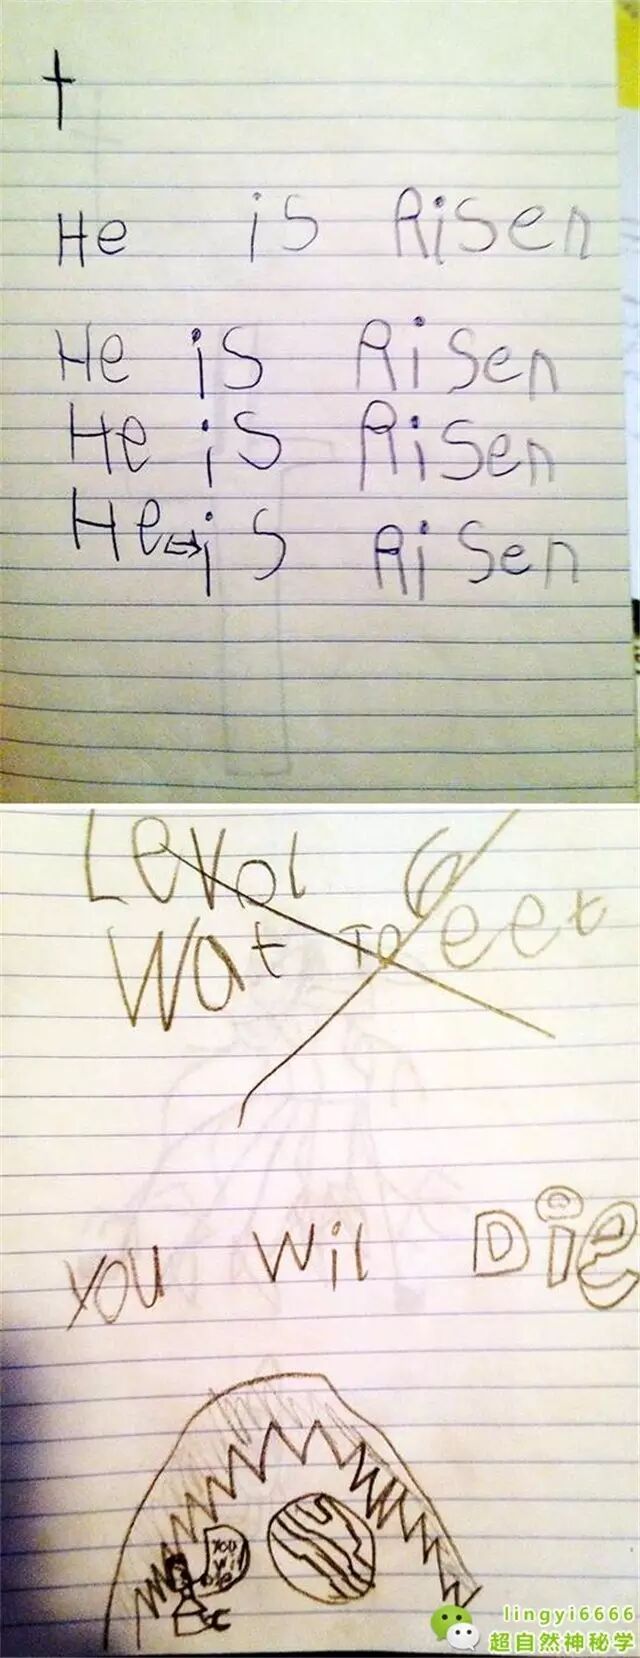 He is Risen
He is Risen
He is Risen
He is Risen
Level 6
Wat To eet
You Wil Die
You
Wil
Die
lingyi6666
超自然神秘学